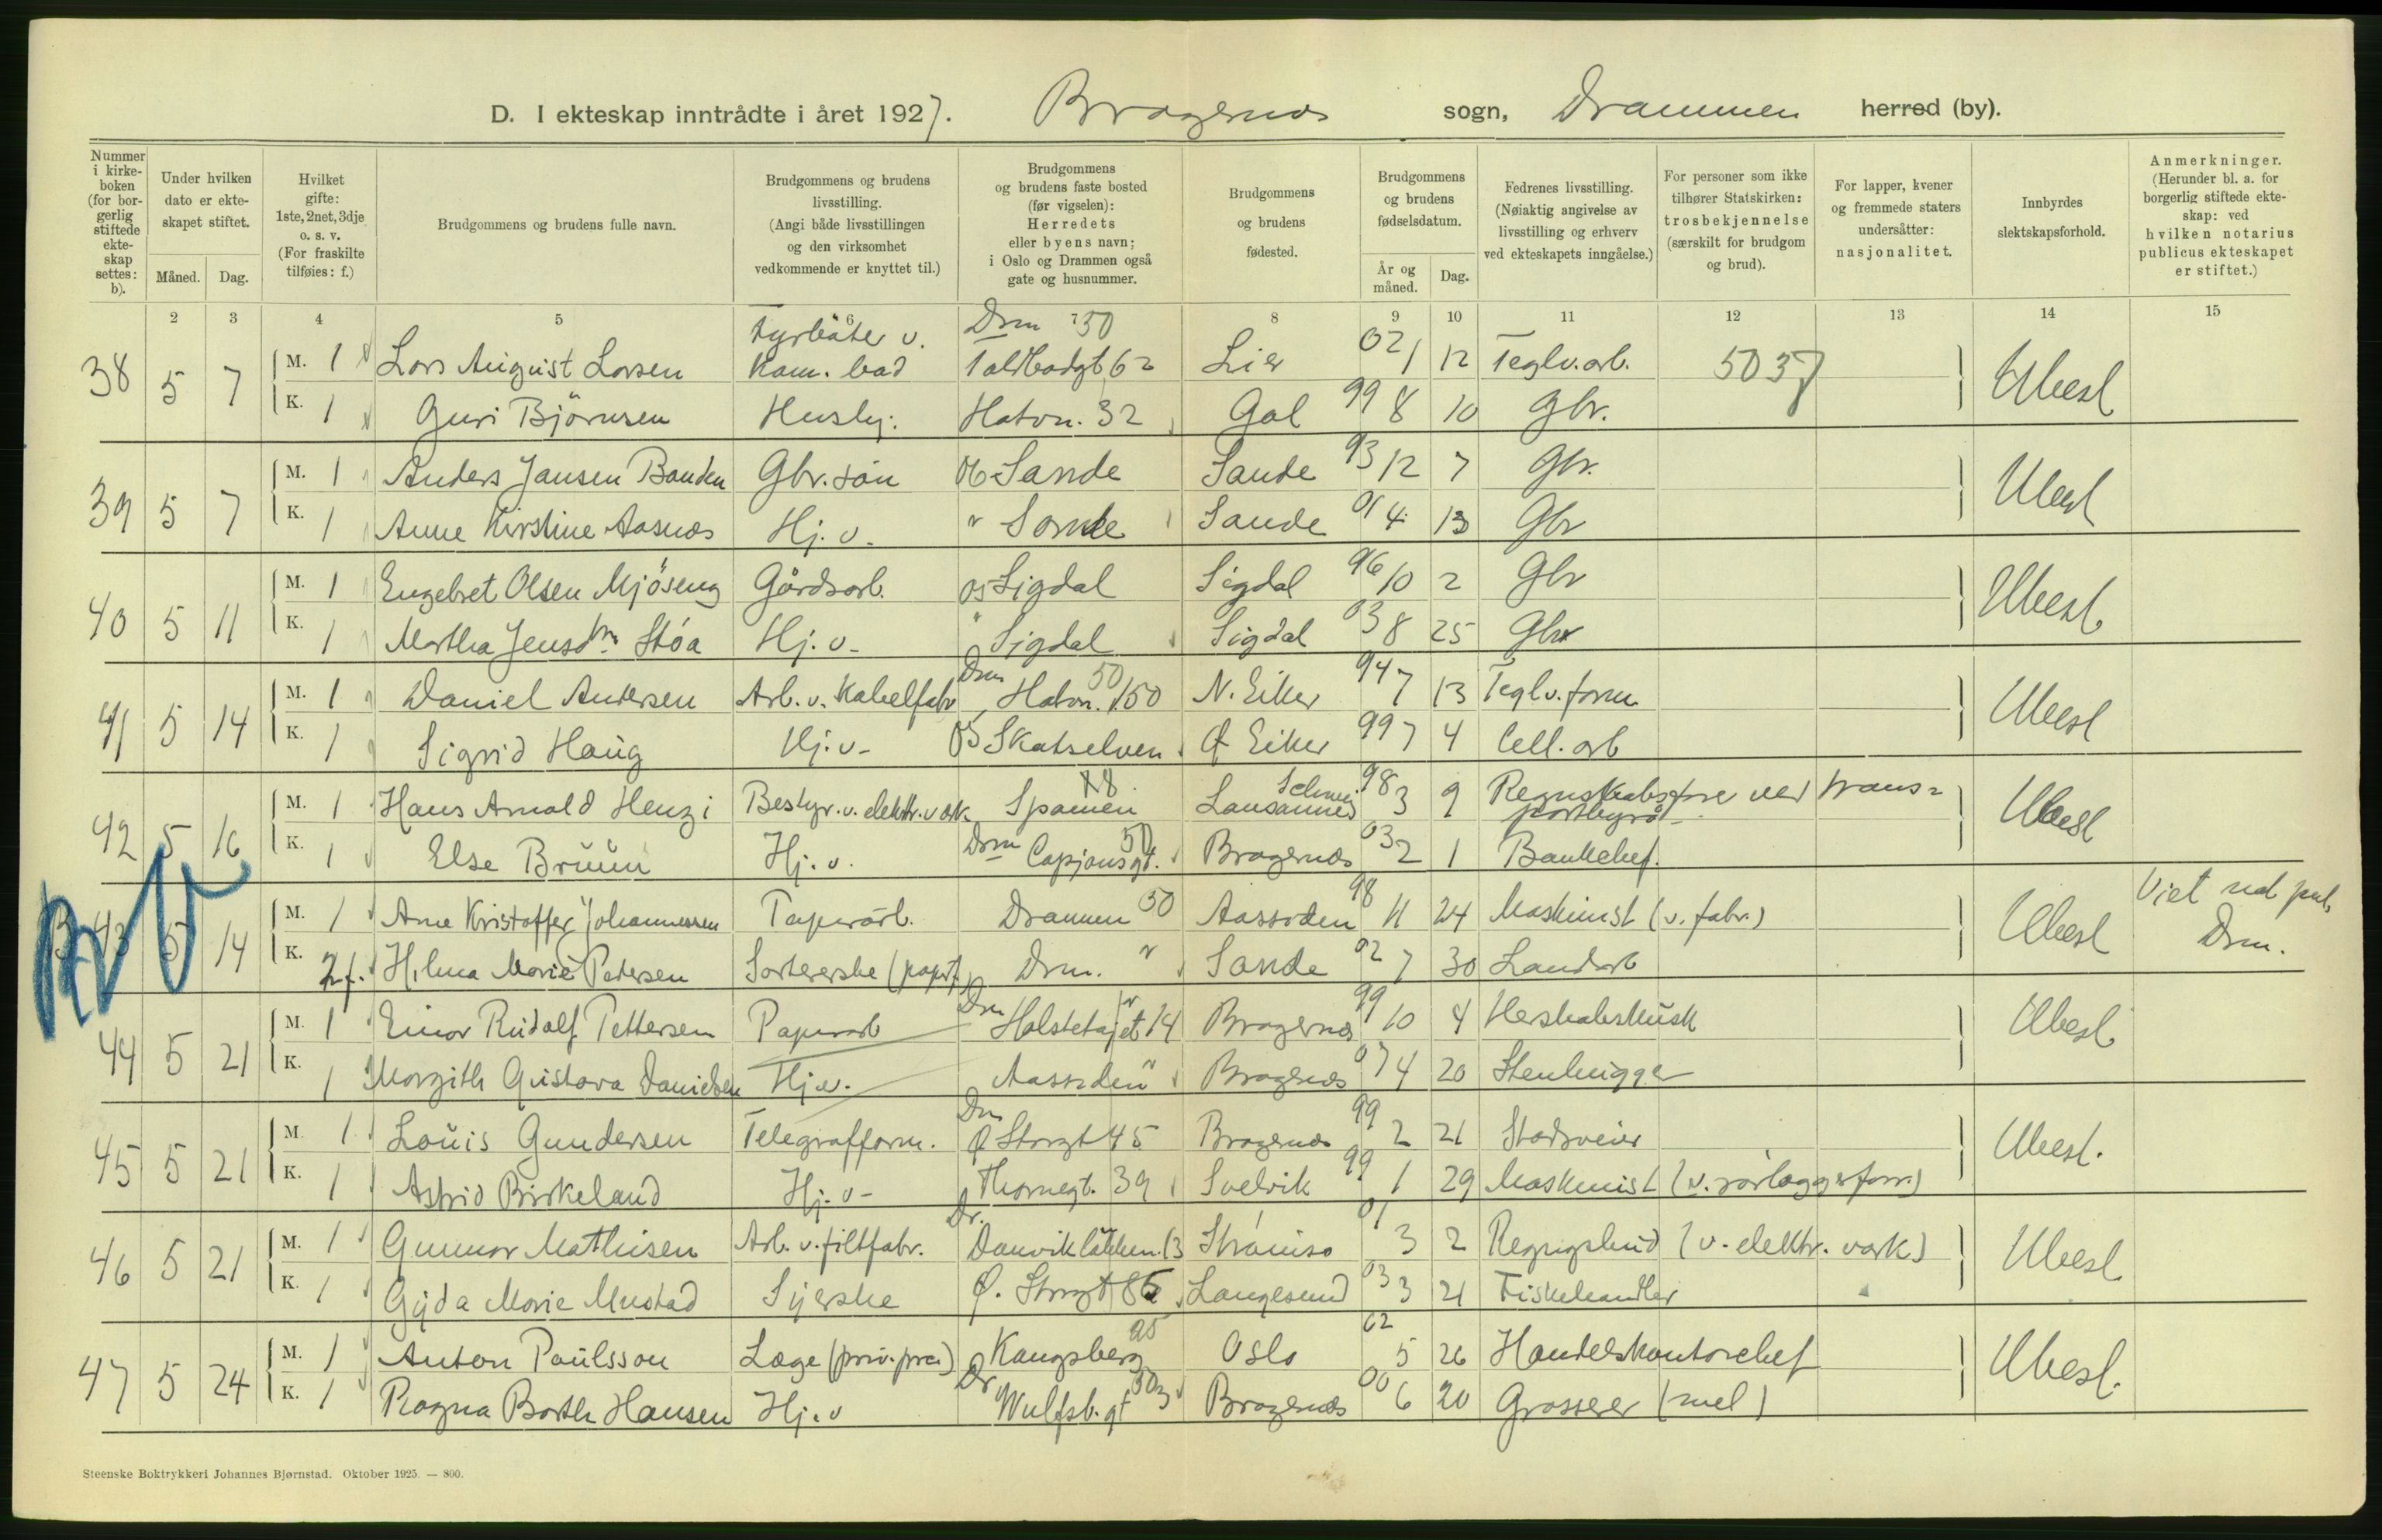 D. I ekteskap inntrådte i året 1927. Bragernes sogn, Drammen herred (by).
Nummer i kirkeboken (for borgerlig stiftede ekteskap settes: b).
Under hvilken dato er ekteskapet stiftet.
Måned. Dag.
Hvilket gifte: 1ste, 2net, 3dje o. s. v. (For fraskilte tilføies: f.)
Brudgommens og brudens fulle navn.
Brudgommens og brudens livsstilling. (Angi både livsstillingen og den virksomhet vedkommende er knyttet til.)
Brudgommens og brudens faste bosted (før vigselen): Herredets eller byens navn; i Oslo og Drammen også gate og husnummer.
Brudgommens og brudens fødested.
Brudgommens og brudens fødselsdatum.
År og måned. Dag.
Fedrenes livsstilling. (Nøiaktig angivelse av livsstilling og erhverv ved ekteskapets inngåelse.)
For personer som ikke tilhører Statskirken: trosbekjennelse (særskilt for brudgom og brud).
For lapper, kvener og fremmede staters undersåtter: nasjonalitet.
Innbyrdes slektskapsforhold.
Anmerkninger. (Herunder bl. a. for borgerlig stiftede ekteskap: ved hvilken notarius publicus ekteskapet er stiftet.)
2 3 4 5 6 7 8 9 10 11 12 13 14 15
38 5 7 M. 1 Lars August Larsen Fyrbøter v. Kom. bad Drm 50 Toldbodgt 62 Lier 02 1 12 Teglv.arb. 5037 Ubesl
K. 1 Guri Björnsen Hushj. Havn. 32 Gol 99 8 10 Gbr.
39 5 7 M. 1 Anders Jansen Bonden Gbr. sön 06 Sande Sande 93 12 7 Gbr. Ubesl
K. 1 Anne Kirstine Aasnæs Hj. v. " Sande Sande 01 4 13 Gbr
40 5 11 M. 1 Engebret Olsen Mjöseng Gårdsarb. 05 Sigdal Sigdal 96 10 2 Gbr Ubesl
K. 1 Martha Jensdtr Stóa Hj. v. " Sigdal Sigdal 03 8 25 Gbr
41 5 14 M. 1 Daniel Andersen Arb. v. Kabelfabr Drm 50 Havn. 150 N. Eiker 94 7 13 Teglv. form. Ubesl
K. 1 Sigrid Haug Hj. v. 05 Skotselven Ø Eiker 99 7 4 Cell. arb
42 5 16 M. 1 Hans Arnold Henzi Bestyr. v. elektr. verk. Spanien Lausanne 98 3 9 Regnskabsfører ved transportbyrå Ubesl
K. 1 Else Bruun Hj. v. Drm 50 Capjonsgt. Bragernes 03 2 1 Bankchef.
B 43 5 14 M. 1 Arne Kristoffer Johannessen Papirarb. Drammen 50 Aassiden 98 11 24 Maskinist (v. fabr.) Ubesl Viet not. pub. Drm.
K. 2 f. Hilma Marie Petersen Sorterske (papirf.) Drm. " Sande 92 7 30 Landarb
44 5 21 M. 1 Einar Rudolf Pettersen Papirarb Drm Holstetajet 14 Bragernes 99 10 4 Herskabskusk Ubesl
K. 1 Margith Gustava Danielsen Hj. v. Aassiden " Bragernes 07 4 20 Stenhugger
45 5 21 M. 1 Louis Gundersen Telegrafform. Drm Ø Storgt 45 Bragernes 99 2 21 Stadsveier Ubesl.
K. 1 Astrid Birkeland Hj. v. Thornegt. 39 Svelvik 99 1 29 Maskinist (v. rörlæggerforr.)
46 5 21 M. 1 Gunnar Mathisen Arb. v. filtfabr. Dr. Danvikløkken 13 Strömsö 01 3 2 Regnigsbud (v. elektr. værk) Ubesl
K. 1 Gyda Marie Mustad Syerske Ø. Storgt 86 Langesund 03 3 21 Fiskehandler
47 5 24 M. 1 Anton Poulsson Læge (priv. prax) 05 Kongsberg Oslo 02 5 26 Handelskontorchef Ubesl.
K. 1 Ragna Borth Hansen Hj. v Dr Wulfsb. gt Bragernes 00 6 20 Grosserer (mel)
Steenske Boktrykkeri Johannes Bjørnstad. Oktober 1925. — 800.